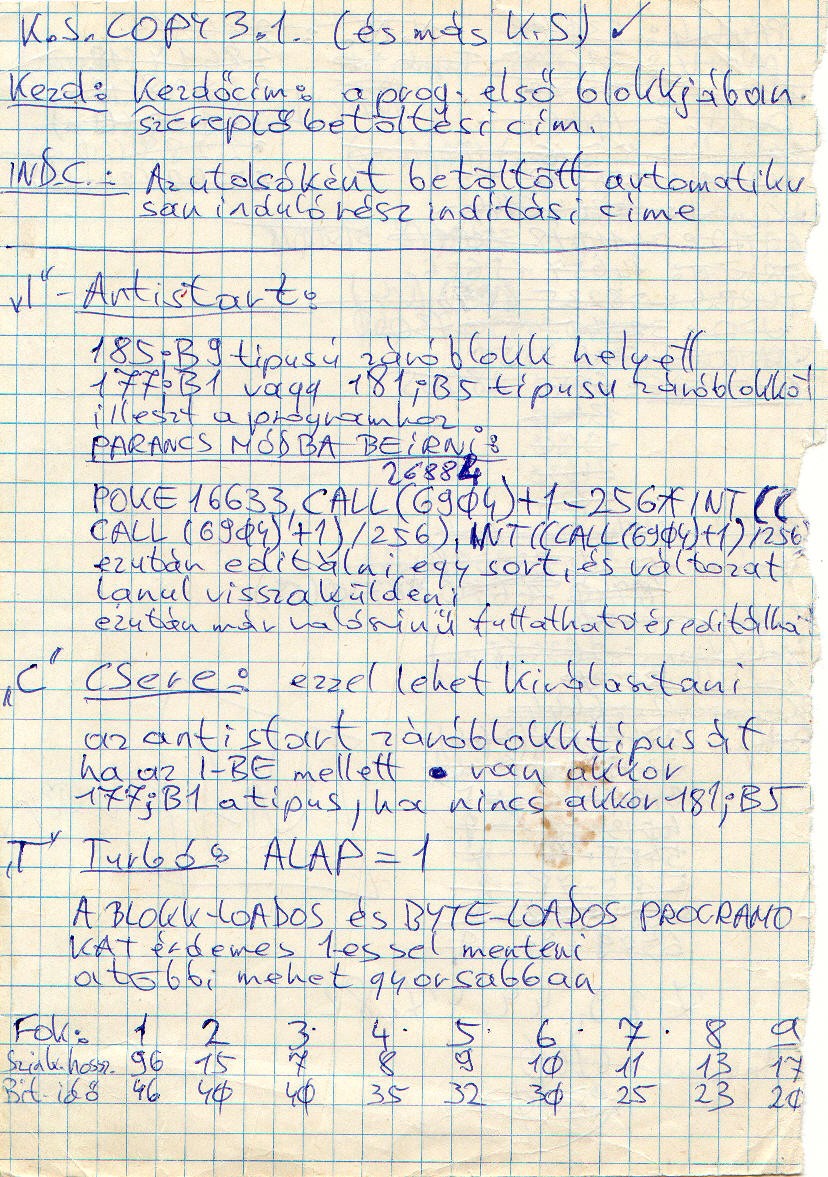 K.S. COPY 3.1. (és más K.S.) ✓
Kezd: Kezdőcím: a prog. első blokkjában
szereplő betöltési cím.
IND.C.: Az utolsóként betöltött automatiku
san induló rész indítási címe
„I" - Antistart:
185;B9 tipusú záróblokk helyett
177;B1 vagy 181;B5 tipusu záróblokkot
illeszt a programhoz
PARANCS MÓDBA BEÍRNI:
26884
POKE 16633, CALL(6904)+1-256*INT((
CALL (6904)+1)/256), INT((CALL(6904)+1)/256
ezután editálni egy sort, és változat
lanul visszaküldeni
ezután már valószinű futtatható és editálha
„C" CSere: ezzel lehet kiválasztani
az antistart záróblokktípusát
ha az I-BE mellett • van akkor
177;B1 a tipus, ha nincs akkor 181;B5
„T" Turbó: ALAP = 1
A BLOKK-LOADOS és BYTE-LOADOS PROGRAMO
KAT érdemes 1-essel menteni
a többi mehet gyorsabban
Fok: 1 2 3· 4· 5· 6· 7· 8 9
Szink.hossz. 96 15 7 8 9 10 11 13 17
Bit-idő 46 40 40 35 32 30 25 23 20